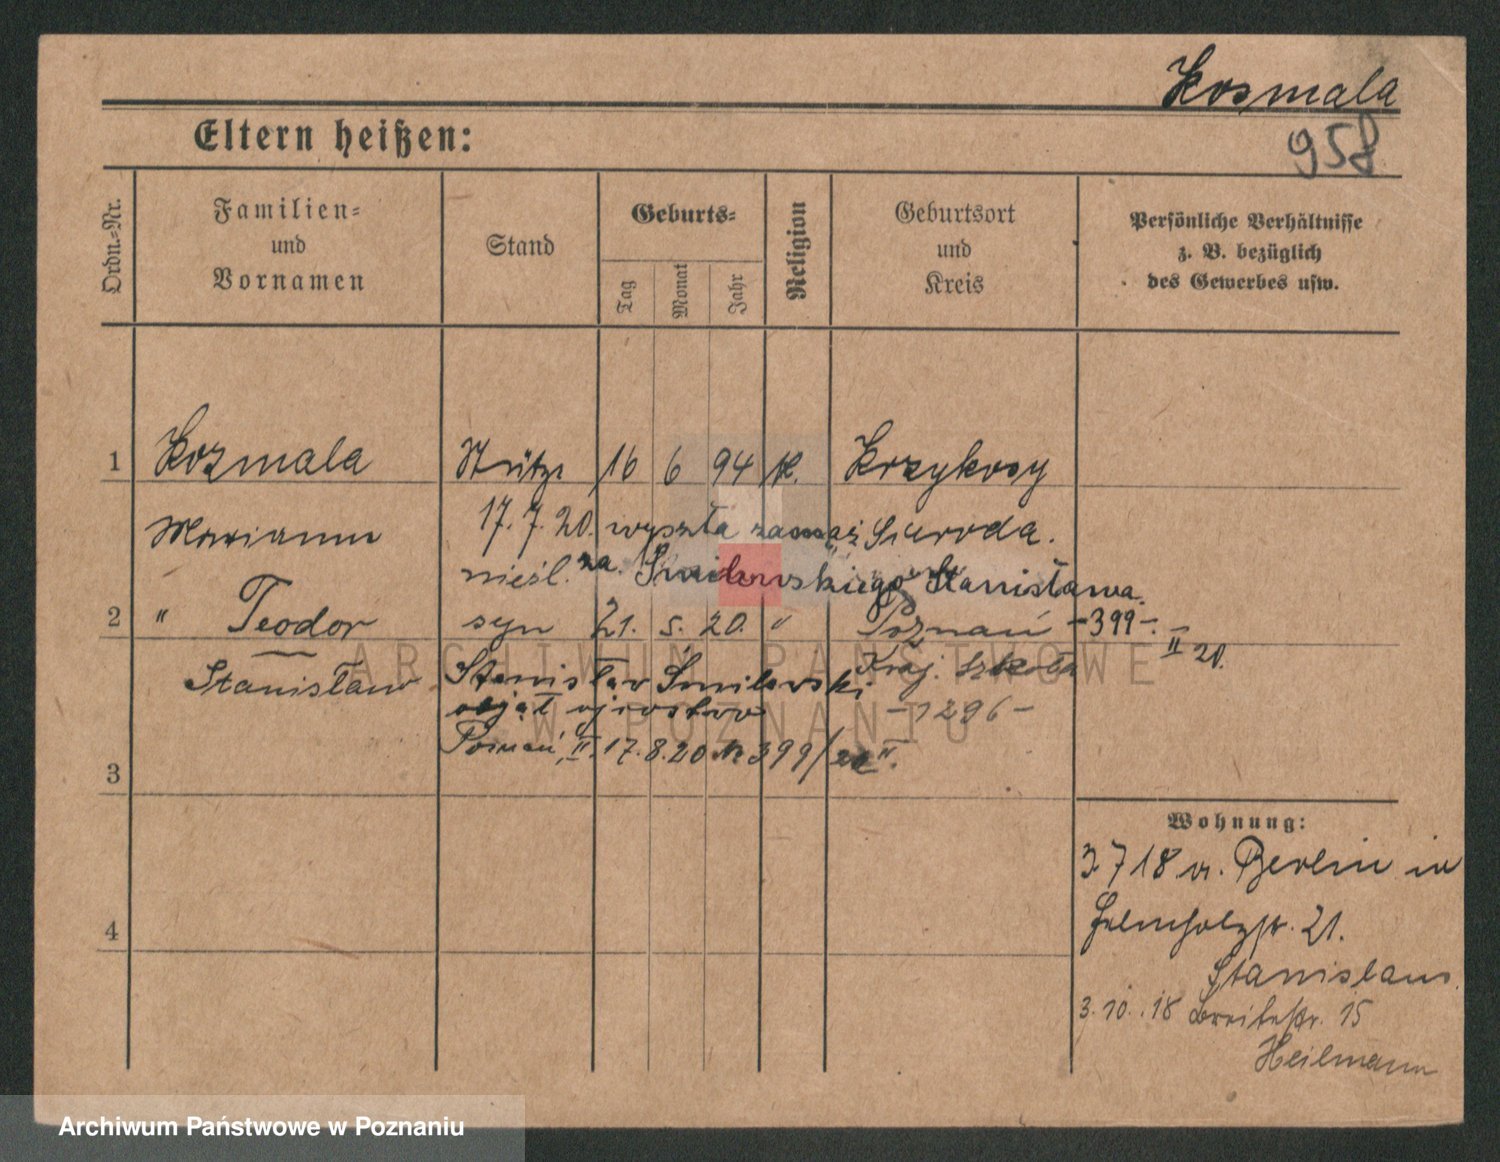 Kosmala
958
Eltern heißen:
Ordn.-Nr.
Familien-
und
Vornamen
Stand
Geburts-
Tag
Monat
Jahr
Religion
Geburtsort
und
Kreis
Persönliche Verhältnisse
z. B. bezüglich
des Gewerbes usw.
1 Kozmala Stütze 16 6 94 K. Krzykosy
Marianna 17. 7. 20. wyszła zamąż
nieśl. za Śmiłowskiego Stanisława.
2 " Teodor syn 21. 5. 20. " Poznań -399-.
II 20.
Stanisław Stanisław Śmiłowski Kraj. Szkoła
objął ojcostwo -1296-
Poznań, II. 17. 8. 20 Nr 399/20 II.
3
Wohnung:
3 7 18 v. Berlin in
Helmholzstr. 21.
4
Stanislaus.
3. 10. 18 Breitestr. 15
Heilmann
ARCHIWUM PAŃSTWOWE
W POZNANIU
Archiwum Państwowe w Poznaniu